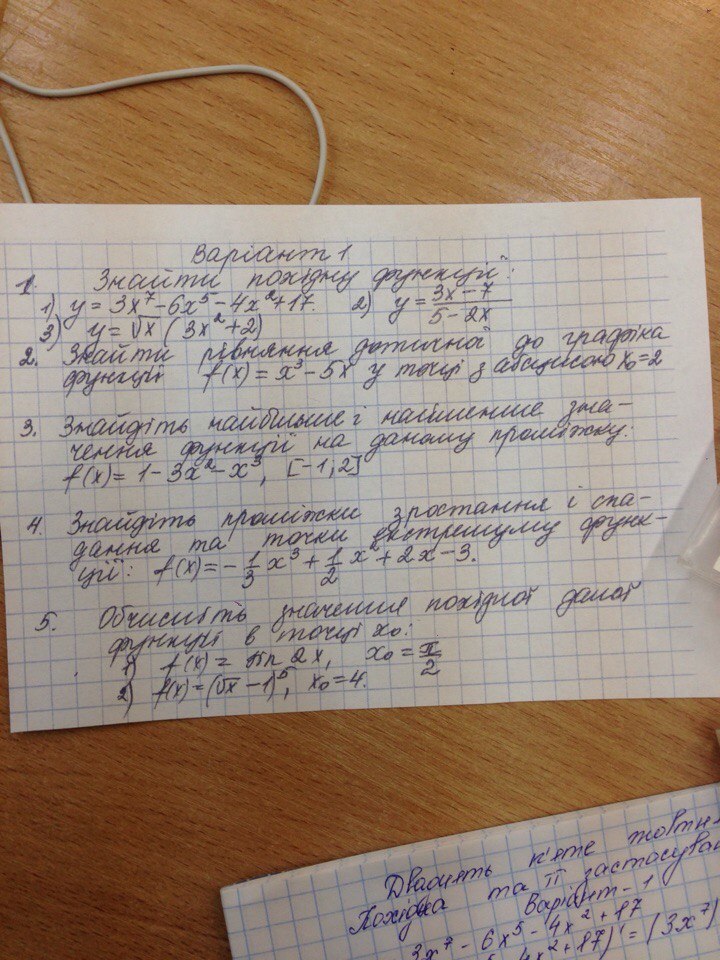 Варіант 1.
1. Знайти похідну функції:
1) y = 3x⁷ - 6x⁵ - 4x² + 17. 2) y = (3x - 7)/(5 - 2x)
3) y = √x (3x² + 2)
2. Знайти рівняння дотичної до графіка
функції f(x) = x³ - 5x у точці з абсцисою x₀ = 2
3. Знайдіть найбільше і найменше зна-
чення функції на даному проміжку:
f(x) = 1 - 3x² - x³, [-1, 2]
4. Знайдіть проміжки зростання і спа-
дання та точки екстремуму функ-
ції: f(x) = -1/3 x³ + 1/2 x² + 2x - 3.
5. Обчисліть значення похідної даної
функції в точці x₀:
1) f(x) = sin 2x, x₀ = π/2
2) f(x) = (√x - 1)⁵, x₀ = 4.
Двадцять п'яте жовтн
Похідна та її застосуван
Варіант - 1
3x⁷ - 6x⁵ - 4x² + 17
4x² + 17)' = (3x⁷)